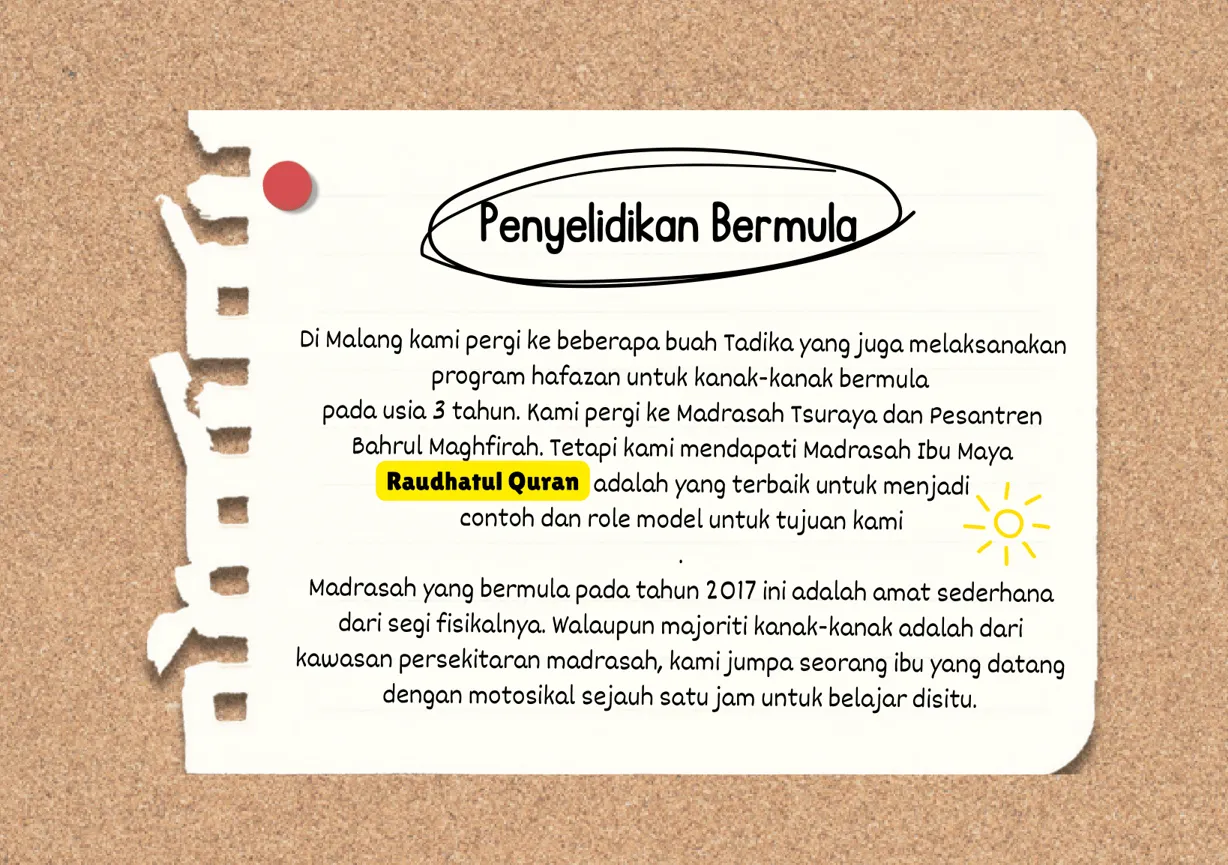 Penyelidikan Bermula
Di Malang kami pergi ke beberapa buah Tadika yang juga melaksanakan
program hafazan untuk kanak-kanak bermula
pada usia 3 tahun. Kami pergi ke Madrasah Tsuraya dan Pesantren
Bahrul Maghfirah. Tetapi kami mendapati Madrasah Ibu Maya
Raudhatul Quran adalah yang terbaik untuk menjadi
contoh dan role model untuk tujuan kami
.
Madrasah yang bermula pada tahun 2017 ini adalah amat sederhana
dari segi fisikalnya. Walaupun majoriti kanak-kanak adalah dari
kawasan persekitaran madrasah, kami jumpa seorang ibu yang datang
dengan motosikal sejauh satu jam untuk belajar disitu.